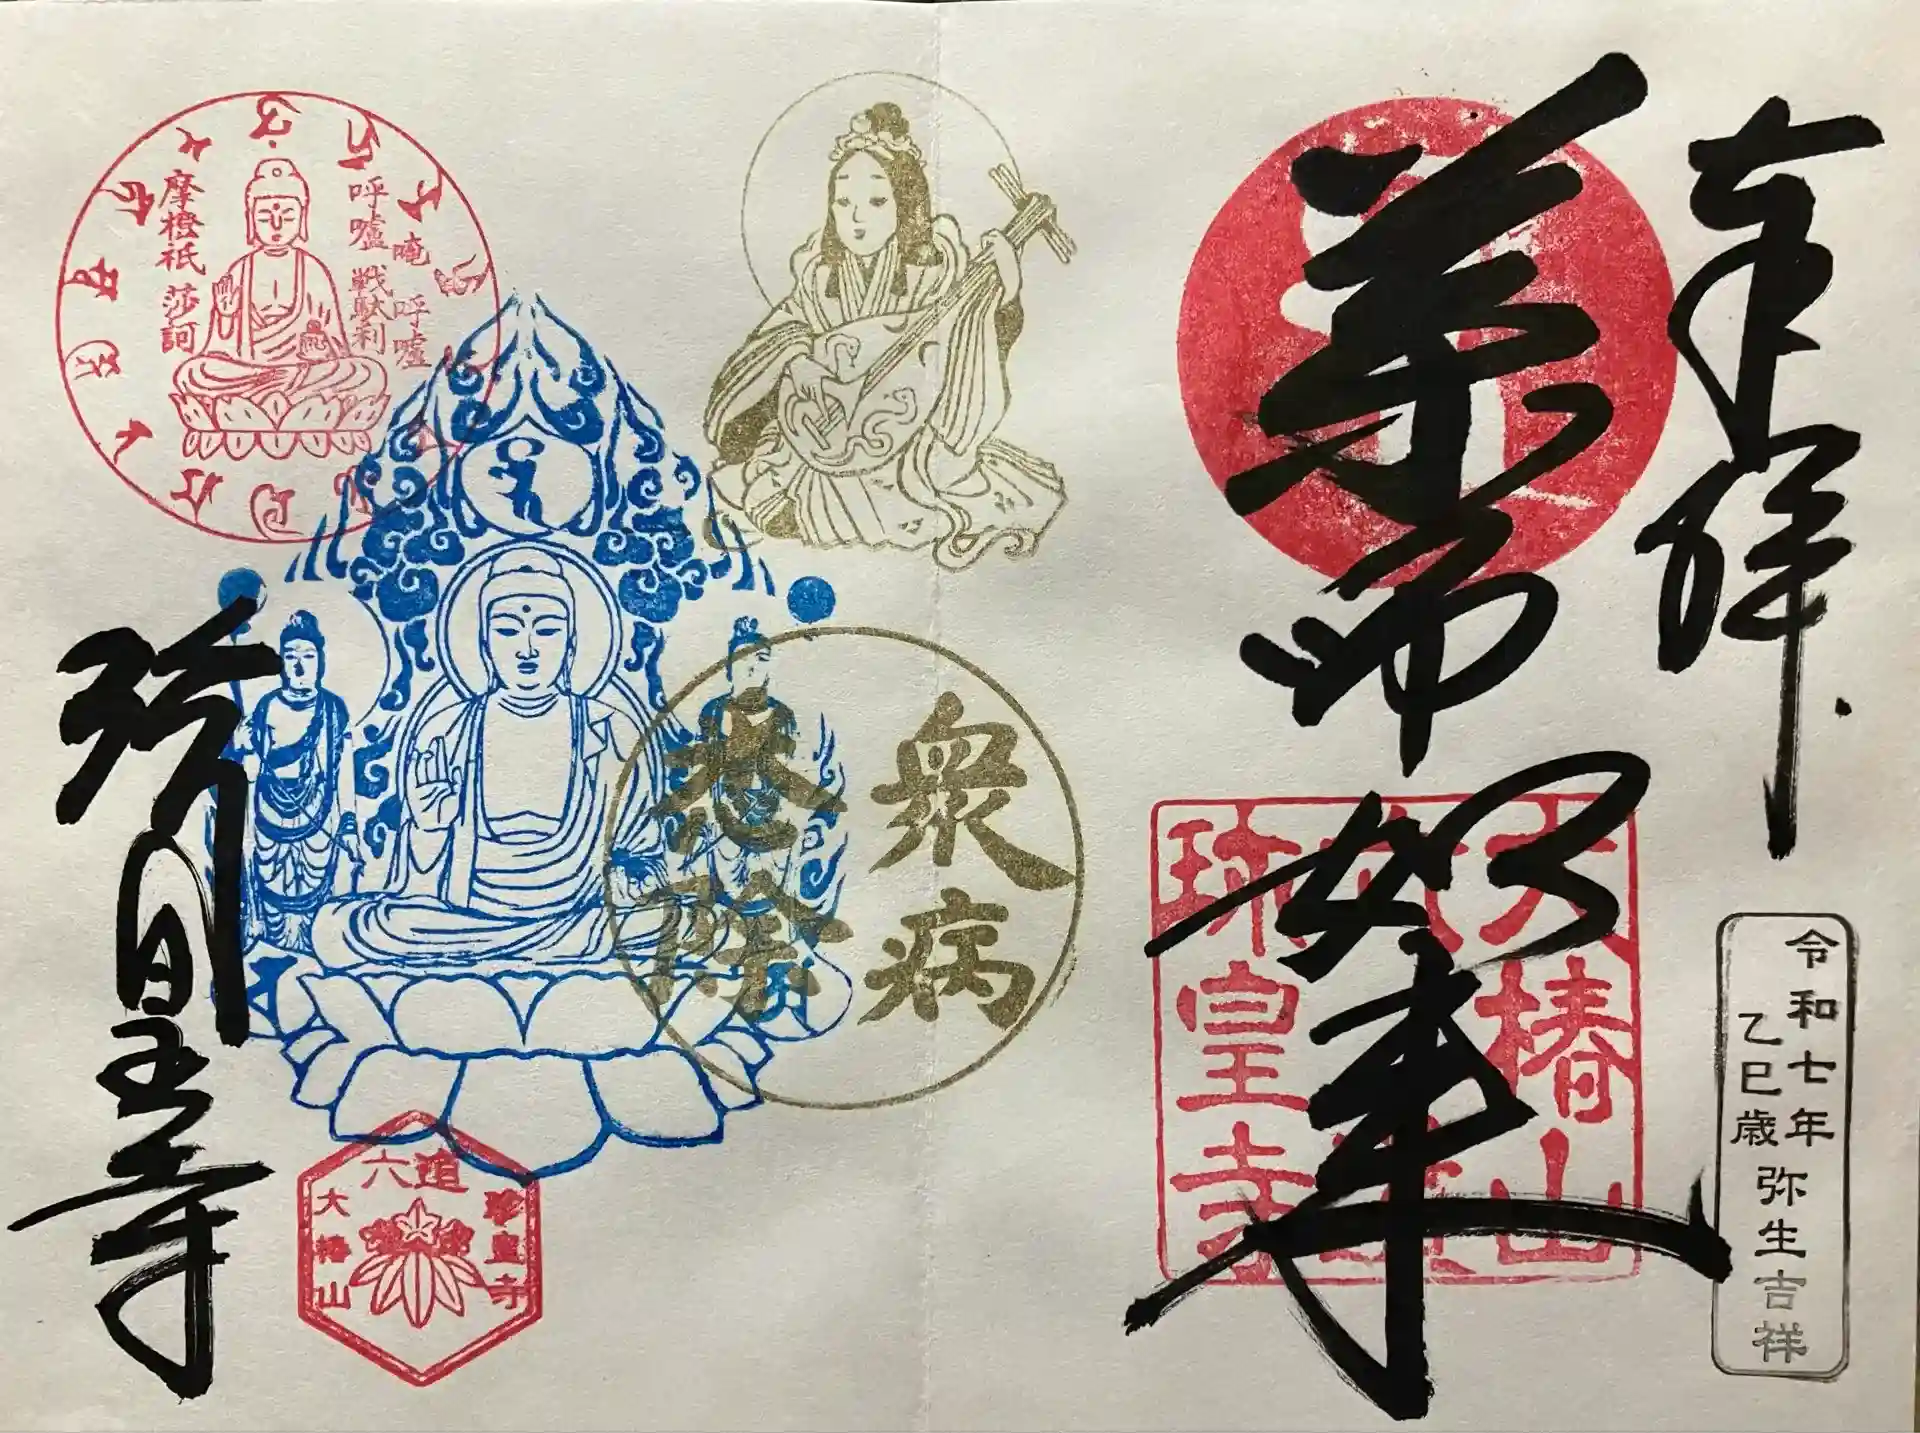 奉拝
薬師如来
大椿山
珍皇寺
令和七年
乙巳歳
弥生吉祥
衆病
悉除
唵 呼嚧
呼嚧 戦駄利
摩橙祇 莎訶
珍皇寺
六道
珍皇寺
大椿山